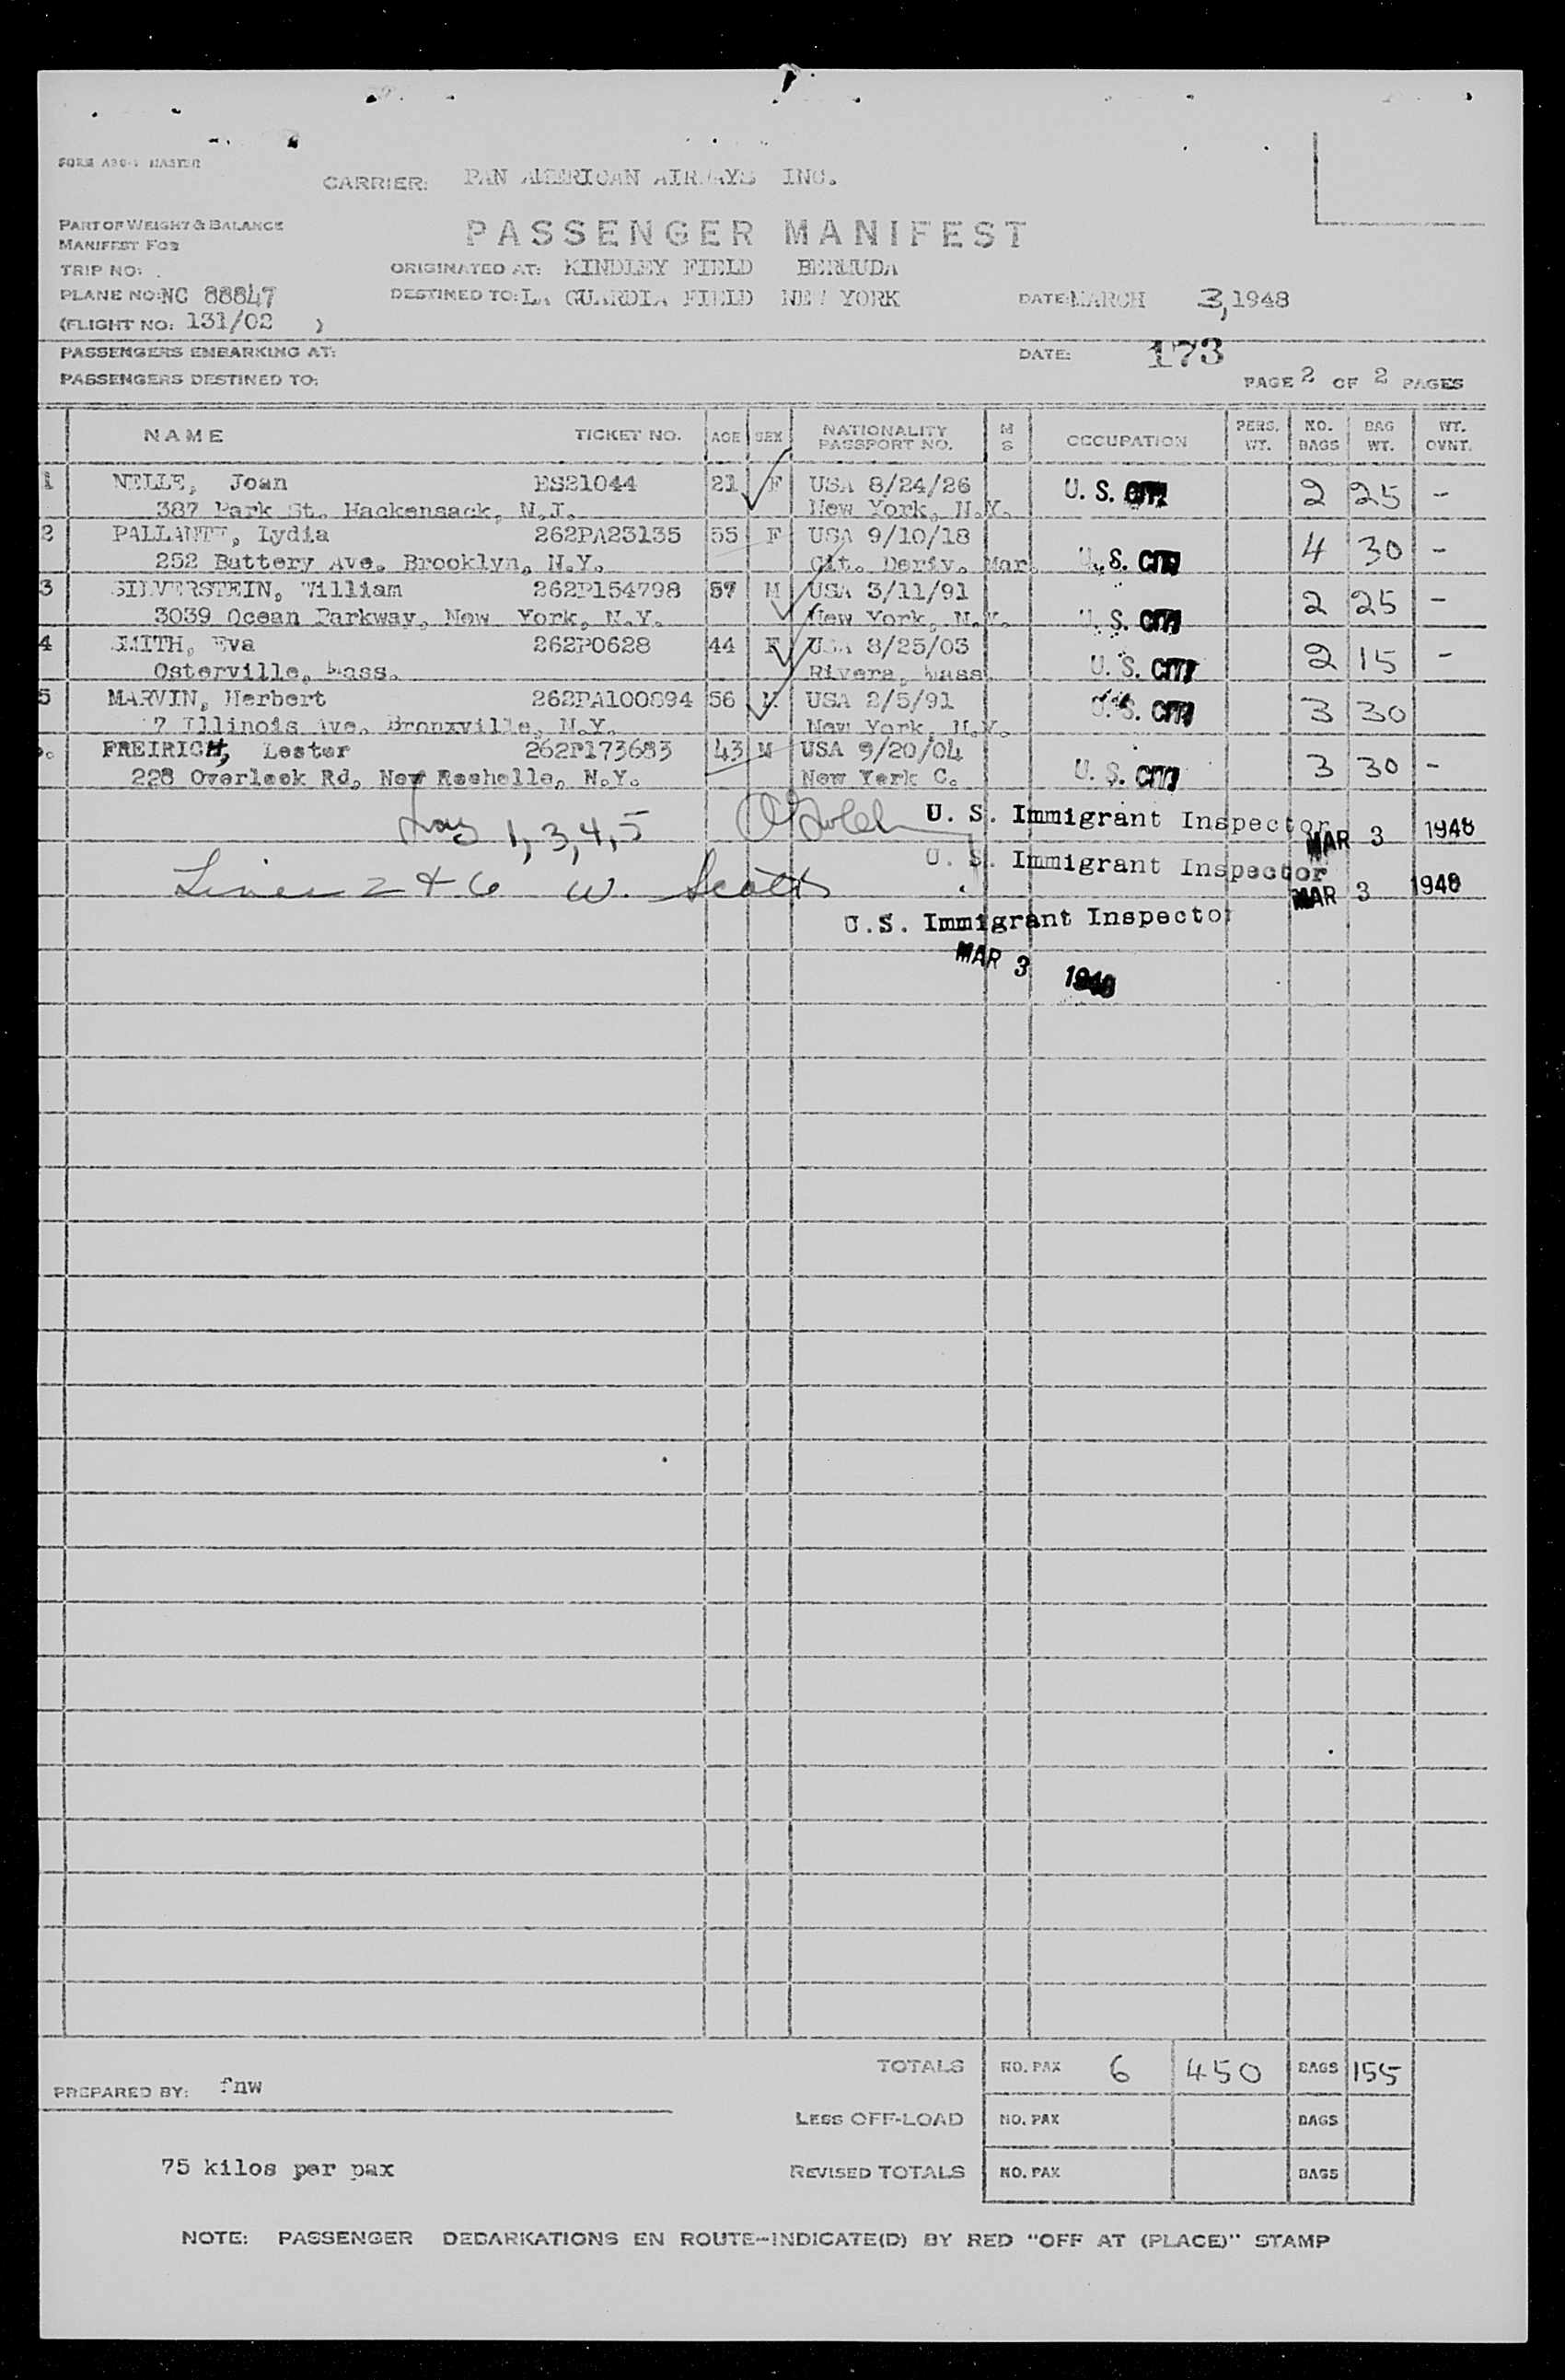 FORM A30-1 MASTER
CARRIER: PAN AMERICAN AIRWAYS INC.
PART OF WEIGHT & BALANCE
MANIFEST FOR
PASSENGER MANIFEST
TRIP NO:
ORIGINATED AT: KINDLEY FIELD BERMUDA
PLANE NO: NC 88847
DESTINED TO: LA GUARDIA FIELD NEW YORK
DATE: MARCH 3, 1948
(FLIGHT NO: 131/02 )
PASSENGERS EMBARKING AT:
DATE: 173
PASSENGERS DESTINED TO:
PAGE 2 OF 2 PAGES
NAME TICKET NO. AGE SEX NATIONALITY PASSPORT NO. M S OCCUPATION PERS. WT. NO. BAGS BAG WT. WT. OVNT.
1 NELLE, Joan ES21044 21 F USA 8/24/26 U. S. CIT. 2 25 -
387 Park St. Hackensack, N.J. New York, N.Y.
2 PALLANTE, Lydia 262PA23135 55 F USA 9/10/18 4 30 -
252 Battery Ave. Brooklyn, N.Y. Cit. Deriv. Mar. U. S. CIT.
3 SILVERSTEIN, William 262P154798 57 M USA 3/11/91 2 25 -
3039 Ocean Parkway, New York, N.Y. New York, N.Y. U. S. CIT.
4 SMITH, Eva 262P0628 44 F USA 8/25/03 2 15 -
Osterville, Mass. Rivera, Mass U. S. CIT.
5 MARVIN, Herbert 262PA100894 56 M USA 2/5/91 U. S. CIT. 3 30
7 Illinois Ave. Bronxville, N.Y. New York, N.Y.
6. FREIRICH, Lester 262P173683 43 M USA 9/20/04 3 30 -
228 Overlook Rd, New Rochelle, N.Y. New York C. U. S. CIT.
1, 3, 4, 5 U. S. Immigrant Inspector MAR 3 1948
Lines 2 & 6 W. Scott U. S. Immigrant Inspector MAR 3 1948
U.S. Immigrant Inspector
MAR 3 1948
TOTALS NO. PAX 6 450 BAGS 155
PREPARED BY: fnw
LESS OFF-LOAD NO. PAX BAGS
75 kilos per pax
REVISED TOTALS NO. PAX BAGS
NOTE: PASSENGER DEBARKATIONS EN ROUTE-INDICATE(D) BY RED "OFF AT (PLACE)" STAMP